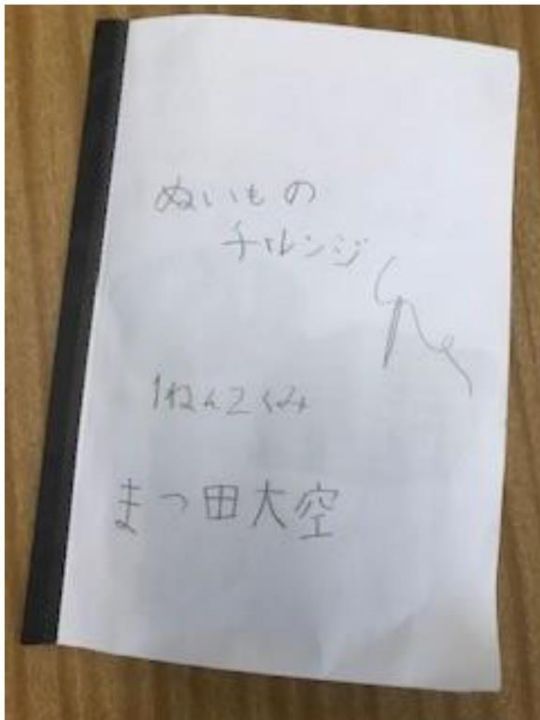 ぬいもの
チャレンジ
1ねん2くみ
まつ田大空